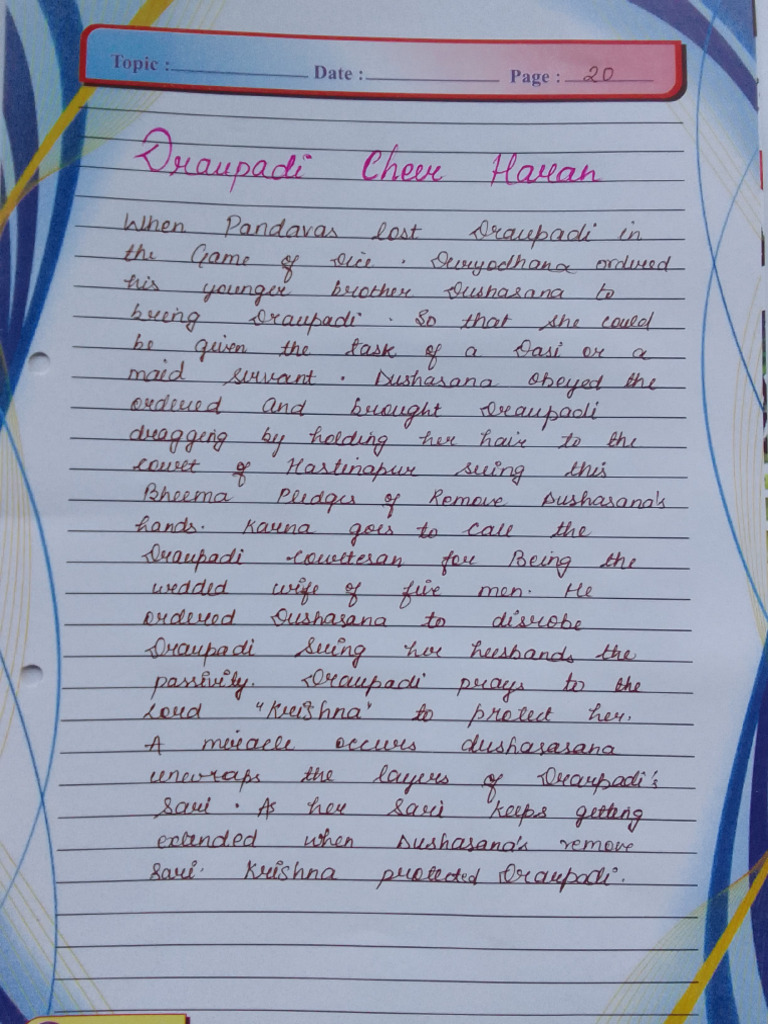 Topic : Date : Page : 20
Draupadi Cheer Haran
When Pandavas lost Draupadi in
the Game of Dice. Duryodhana ordered
his younger brother Dushasana to
bring Draupadi. So that she could
be given the task of a Dasi or a
maid servant. Dushasana obeyed the
ordered and brought Draupadi
dragging by holding her hair to the
court of Hastinapur seeing this
Bheema Pledges of Remove Dushasana's
hands. Karna goes to call the
Draupadi courtesan for Being the
wedded wife of five men. He
ordered Dushasana to disrobe
Draupadi Seeing her husbands the
passivity. Draupadi prays to the
Lord "Krishna" to protect her.
A miracle occurs dushasasana
unwraps the layers of Draupadi's
Sari. As her Sari keeps getting
extended when Dushasana's remove
Sari. Krishna protected Draupadi.